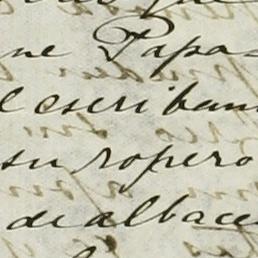 ne Papa
el escriban
su ropero
de albacea